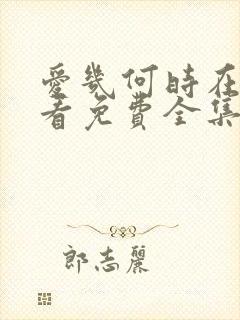 愛幾何時在
看免費全集
郎志麗